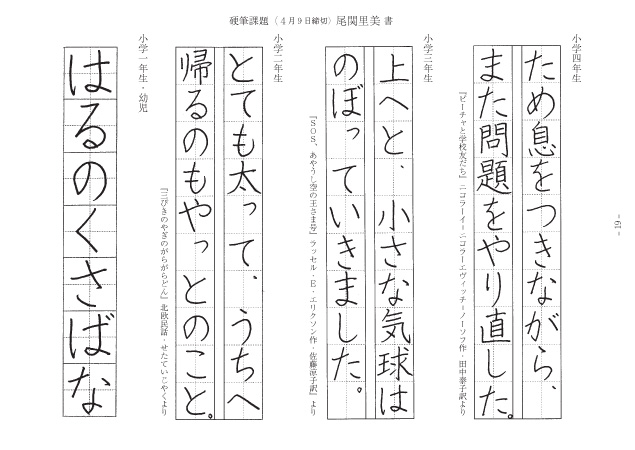 硬筆課題（４月９日締切）尾関里美 書
小学四年生
ため息をつきながら、
また問題をやり直した。
『ビーチャと学校友だち』ニコラーイ・ニコラーエヴィッチ・ノーソフ作・田中泰子訳より
小学三年生
上へと、小さな気球は
のぼっていきました。
『ＳＯＳ、あやうし空の王さま号』ラッセル・Ｅ・エリクソン作・佐藤涼子訳』より
小学二年生
とても太って、うちへ
帰るのもやっとのこと。
『三びきのやぎのがらがらどん』北欧民話・せたていじやくより
小学一年生・幼児
はるのくさばな
- 19 -